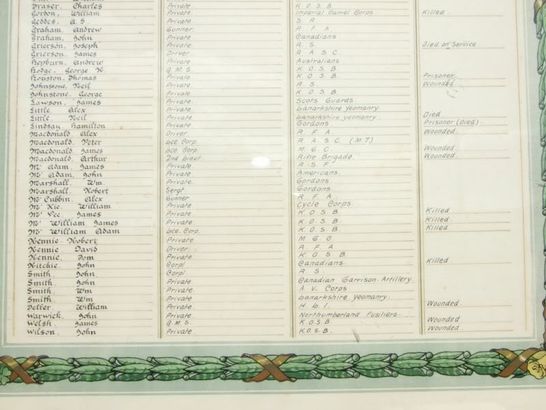 Fraser, Charles Private K.O.S.B.
Gordon, William Private Imperial Camel Corps Killed
Geddes, A.S. Private S R
Graham, Andrew Gunner R F A
Graham, John Private Canadians
Grierson, Joseph Private R.S. Died on Service
Grierson, James Driver R A S C
Hepburn, Andrew Private Australians
Hodge, George Q.M.S K.O.S.B
Houston, Thomas Private K.O.S.B. Prisoner
Johnstone, Neil Private R.S Wounded
Johnstone, George Private K.O.S.B
Lawson, James Private Scots Guards
Little Alex Private Lanarkshire Yeomanry
Little Neil Private Lanarkshire yeomanry Died
Lindsay Hamilton Private Gordons Prisoner (Died)
Macdonald Alex Driver R F A Wounded
Macdonald Peter Lce Corp. R A S C (M.T)
Macdonald James Lce Corp. M G C Wounded
Macdonald Arthur 2nd Lieut Rifle Brigade Wounded
Mc Adam, James Private R S F
Mc Adam, John Private Americans
Marshall, Wm Private Gordons
Marshall, Robert Sergt Gordons
Mc Cubbin, Alex Gunner R F A
Mc Kie, William Private Cycle Corps
Mc Vee, James Private K.O.S.B Killed
Mc William James Private K.O.S.B Killed
Mc William Adam Lce Corp. K.O.S.B Killed
Rennie Robert Private M G C
Rennie David Driver R F A
Rennie, Tom Private K O S B
Ritchie, John Corpl Canadians Killed
Smith John Corpl R S
Smith John Private Canadian Garrison Artillery
Smith, Wm Private A V. Corps
Smith Wm Private Lanarkshire Yeomanry
Telfer, William Private H L I. Wounded
Warwick, John Private Northumberland Fusiliers
Welsh, James Q M S K.O.S.B Wounded
Wilson, John Private K.O.S.B. Wounded